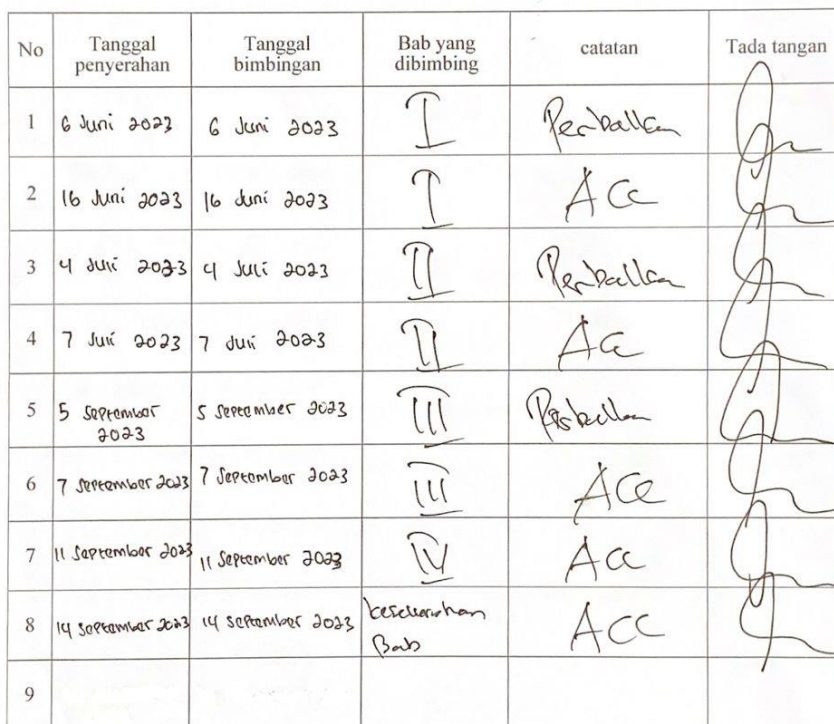 No Tanggal penyerahan Tanggal bimbingan Bab yang dibimbing catatan Tada tangan
1 6 Juni 2023 6 Juni 2023 I Perbaikan
2 16 Juni 2023 16 Juni 2023 I ACC
3 4 Juli 2023 4 Juli 2023 II Perbaikan
4 7 Juli 2023 7 Juli 2023 II ACC
5 5 September 2023 5 September 2023 III Perbaikan
6 7 September 2023 7 September 2023 III ACC
7 11 September 2023 11 September 2023 IV ACC
8 14 September 2023 14 September 2023 keseluruhan Bab ACC
9